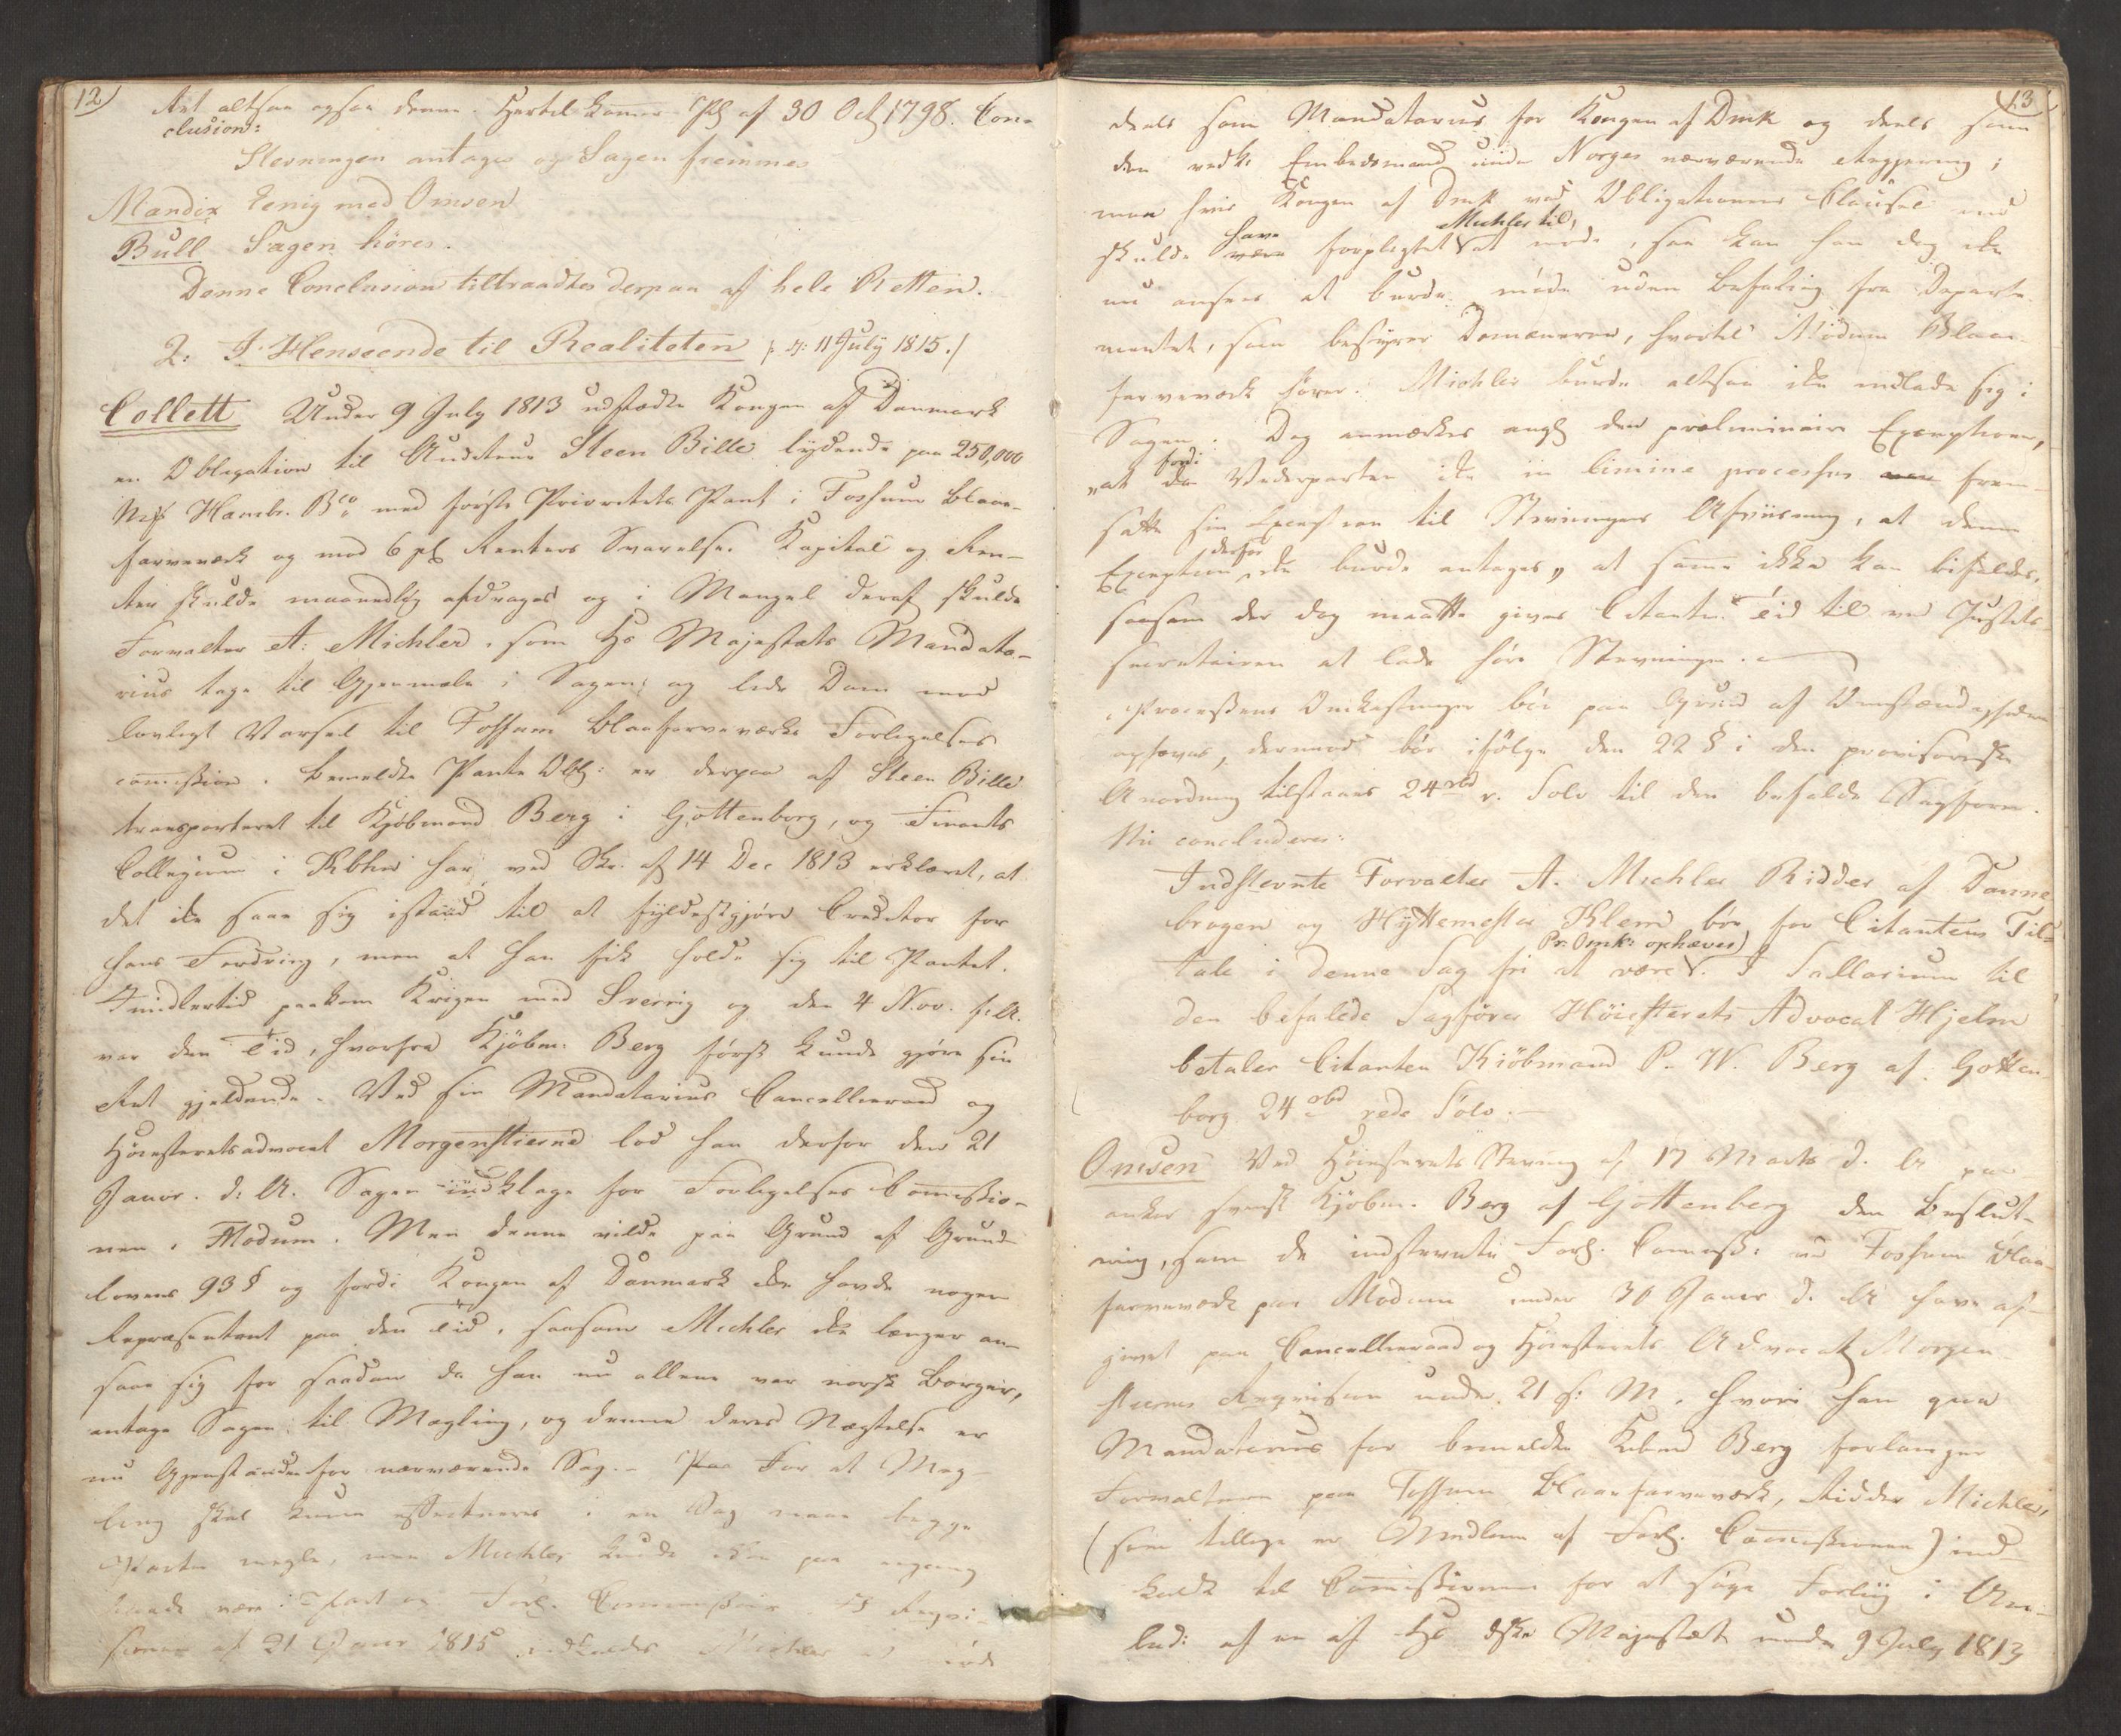 12)
Ret altsaa ogsaa denne. Hertil kommer Pl af 30 Oct 1798. Con-
clusion:
Stevningen antages og Sagen fremmes
Mandix Eenig med Omsen
Bull Sagen höres.
Denne Conclusion tiltraadtes derpaa af hele Retten.
2: I Henseende til Realiteten /: d: 11 July 1815./
Collett Under 9 July 1813 udstædte Kongen af Danmark
en Obligation til Auditeur Steen Bille lydende paa 250,000
Hamb. Bco med förste Prioritets Pant i Fossum Blaae-
farveværk og mod 6 pC Renters Svarelse. Kapital og Ren-
ter skulde maanedlig afdrages og i Mangel deraf skulde
Forvalter A: Michler, som Hs Majestæts Mandata-
rius tage til Gjenmæle i Sagen, og lide Dom med
lovligt Varsel til Fossum Blaafarveværks Forligelses
commission. Bemeldte Pante Obl: er derpaa af Steen Bille
transporteret til Kjöbmand Berg i Gottenborg, og Finants
Collegium i Kbhn har ved Skr. af 14 Dec 1813 erklæret, at
det ikke saae sig istand til at fyldestgjöre Creditor for
hans Fordring, men at han fik holde sig til Pantet.
Imidlertid paakom Krigen med Sverrig og den 4 Nov. f. A.
var den Tid, hvorfra Kjöbm: Berg först kunde gjöre sin
Ret gjeldende. Ved sin Mandatarius Cancelliraad og
Höiesteretsadvocat Morgenstierne lod han derfor den 21
Januar. d: A. Sagen indklage for Forligelses Commissio-
nen i Modum. Men denne vilde paa Grund af Grund-
lovens 93 § og fordi Kongen af Danmark ikke havde nogen
Repræsentant paa den Tid, saasom Michler ikke længer an-
saae sig for saadan da han nu allene var norsk Borger,
antage Sagen til Mægling, og denne deres Nægtelse er
nu Gjenstanden for nærværende Sag. - For at Mæg-
ling skal kunne effectueres i en Sag maae begge
Parter mægle, men Michler kunde ikke paa engang
baade være Part og Forl. Commissair. I Reqvi-
sitionen af 21 Januar 1815 indkaldes Michler at möde
13
deels som Mandatarius for Kongen af Dmk og deels som
den vedk. Embedsmand under Norges nærværende Regjering;
men hvis Kongen af Dmk ved Obligationens Clausul end
skulde have forpligtet Michler til at möde, saa kan han dog ikke
nu ansees at burde möde uden Befaling fra Departe-
mentet, som bestyrer Domænerne, hvortil Modum Blaae-
farveværk hörer. Michler burde altsaa ikke indlade sig i
Sagen. Dog anmærkes angl den præliminaire Exception,
"at fordi Vederparten ikke in limine processus frem-
satte sin Exception til Stevningens Afviisning, at denne
Exception derfor ikke burde antages" at samme ikke kan bifaldes,
saasom der dog maatte gives Citanten Tid til ved Justits-
secretairen at lade höre Stevningen.
Processens Omkostninger bör paa Grund af Omstændighederne
ophæves, derimod bör ifölge den 22 § i den provisoriske
Anordning tilstaaes 24 rbd r. Sölv til den befalede Sagförer.
Nu concluderes:
Indstevnte Forvalter A. Michler Ridder af Danne
brogen og Hyttemester Klem bör for Citantens Til-
tale i denne Sag fri at være Pr: Omk: ophæves). I Sallarium til
den befalede Sagförer Höiesterets Advocat Hjelm
betaler Citanten Kiöbmand P. W. Berg af Gotten-
borg 24 rbd rede Sölv.
Omsen Ved Höiesterets Stevning af 17 Marts d. A paa
anker svensk Kjöbm. Berg af Gottenberg den Beslut-
ning, som de indstevnte Forl. Commiss: ved Fossum Blaa-
farveværk paa Modum under 30 Januar d. A have af-
givet paa Cancelliraad og Höiesterets Advocat Morgen-
stiernes Reqvisition under 21 s: M, hvori han qua
Mandatarius for bemeldte Kbmd Berg forlanger
Forvalteren paa Fossum Blaaefarveværk, Ridder Michler,
(som tillige er Medlem af Forl. Commissionen) ind-
kaldt til Commissionen for at söge Forliig i An-
led: af en af Hs dske Majestæt under 9 July 1813